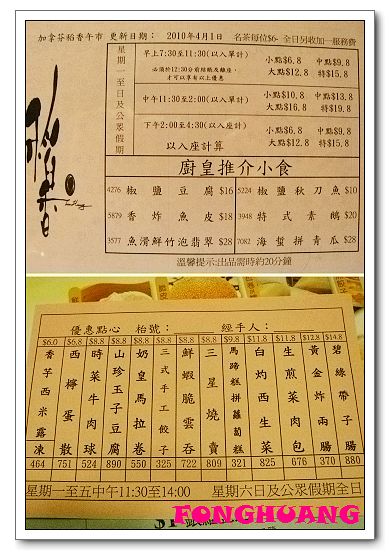 加拿芬稻香午市 更新日期： 2010年4月1日 名茶每位$6- 全日另收加一服務費
星期一至日及公眾假期
早上7:30至11:30(以入單計)
必須於12:30分前結賬及離座，
才可以享有以上優惠
小點$6.8 中點$9.8
大點$12.8 特$15.8
中午11:30至2:00(以入單計)
小點$10.8 中點$13.8
大點$16.8 特$19.8
下午2:00至4:30(以入座計)
以入座計算
小點$6.8 中點$9.8
大點$12.8 特$15.8
稻香
廚皇推介小食
4276 椒鹽豆腐 $16 5224 椒鹽秋刀魚 $10
5879 香炸魚皮 $18 3948 特式素鵝 $20
3577 魚滑鮮竹泡翡翠 $28 7082 海蜇拼青瓜 $28
溫馨提示:出品需時約20分鐘
優惠點心 枱號： 經手人：
$6.0 香芋西米露凍 464
$6.8 西檸蛋散 751
$8.8 時菜牛肉球 524
$8.8 山珍玉子豆腐 890
$8.8 奶皇馬拉卷 550
$8.8 三式手工餃子 325
$8.8 鮮蝦脆雲吞 722
$8.8 三星燒賣 809
$9.8 馬蹄糕拼蘿蔔糕 321
$11.8 白灼西生菜 825
$11.8 生煎菜肉包 676
$12.8 黃金炸兩腸 370
$14.8 碧綠帶子腸 880
星期一至五中午11:30至14:00 星期六日及公眾假期全日
FONGHUANG